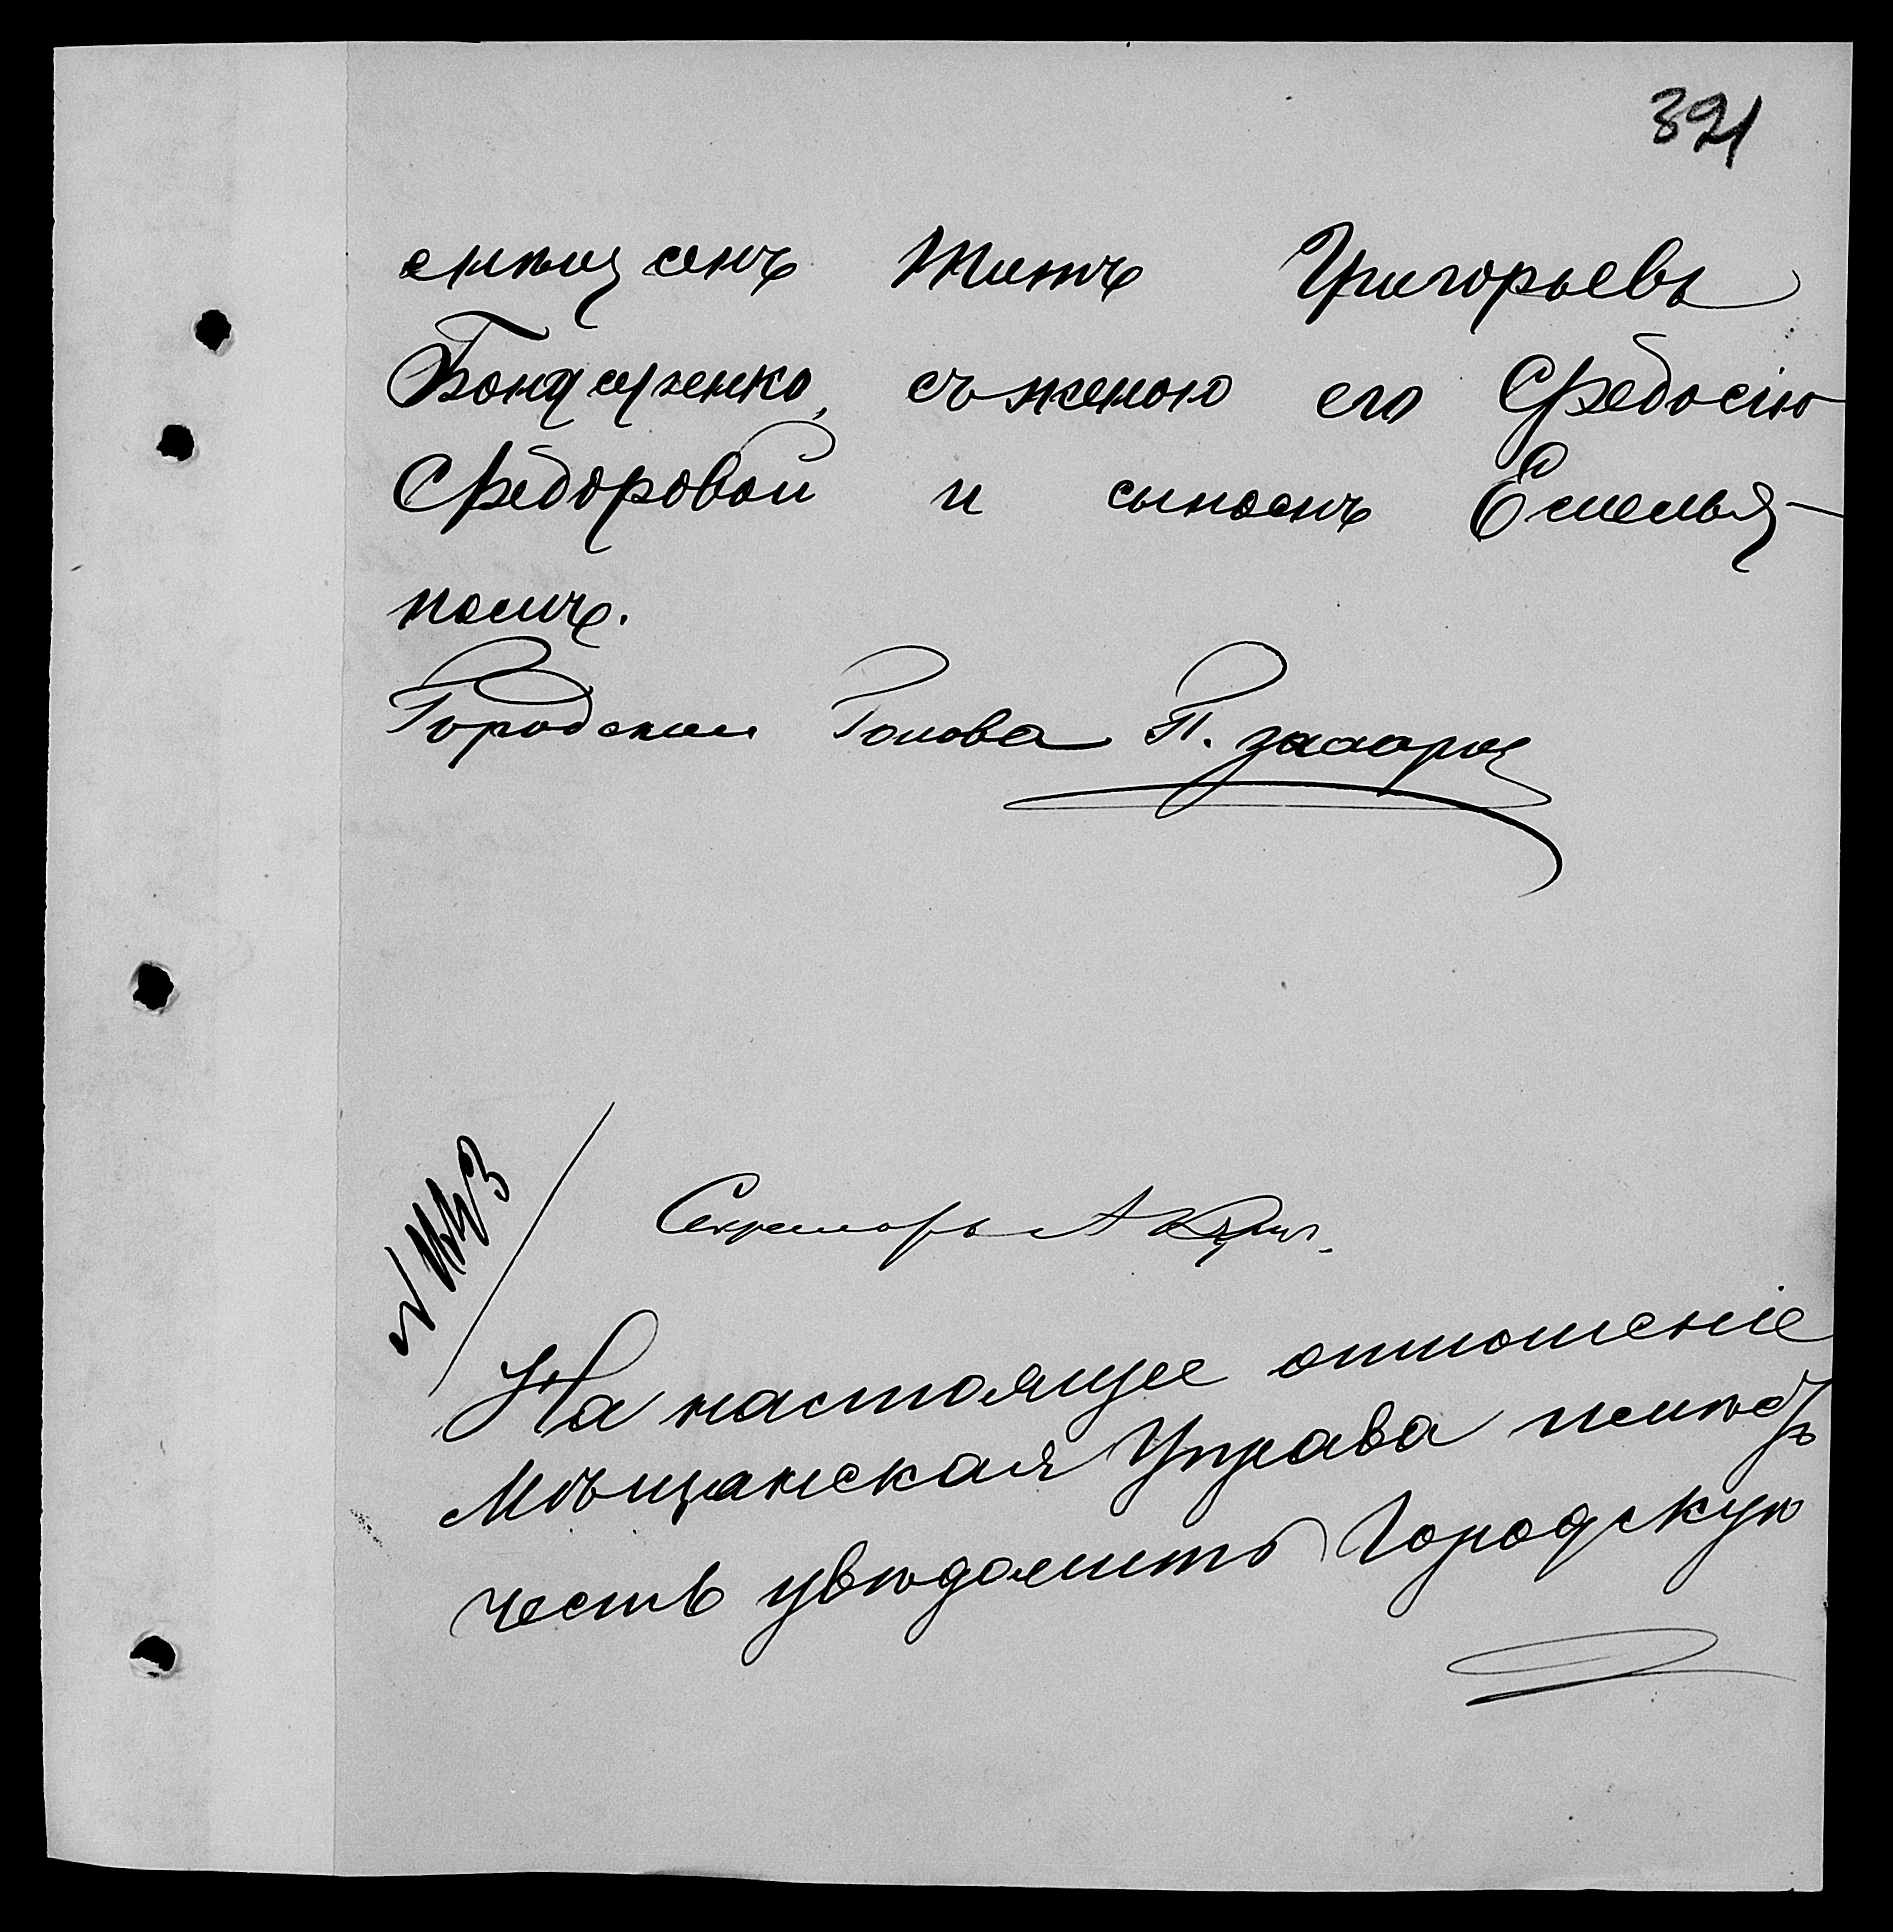 391
мѣщанъ Титъ Григорьевъ
Бондаренко, съ женою его Ѳедосіею
Ѳедоровой и сыномъ Емелья-
номъ.
Городской Голова П.
Секретарь А
На настоящее отношеніе
Мѣщанская Управа имѣетъ
честь увѣдомить Городскую